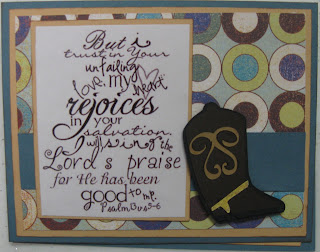 But i
trust in Your
unfailing
love, my
heart
rejoices
in your
salvation.
I will sing of the
Lord's praise
for He has been
good to me.
Psalm 13 v. 5-6